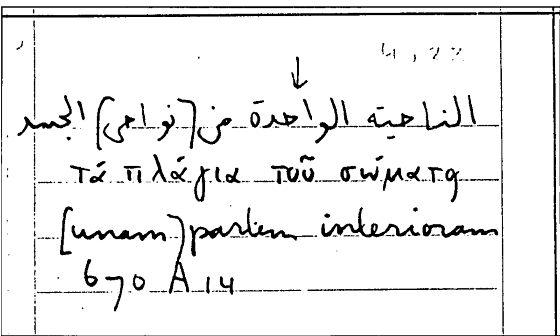 4, 22
الناحية الواحدة من (نواحى) الجسد
τά πλάγια τοῦ σώματα
[unam) partem interioram
670 A 14